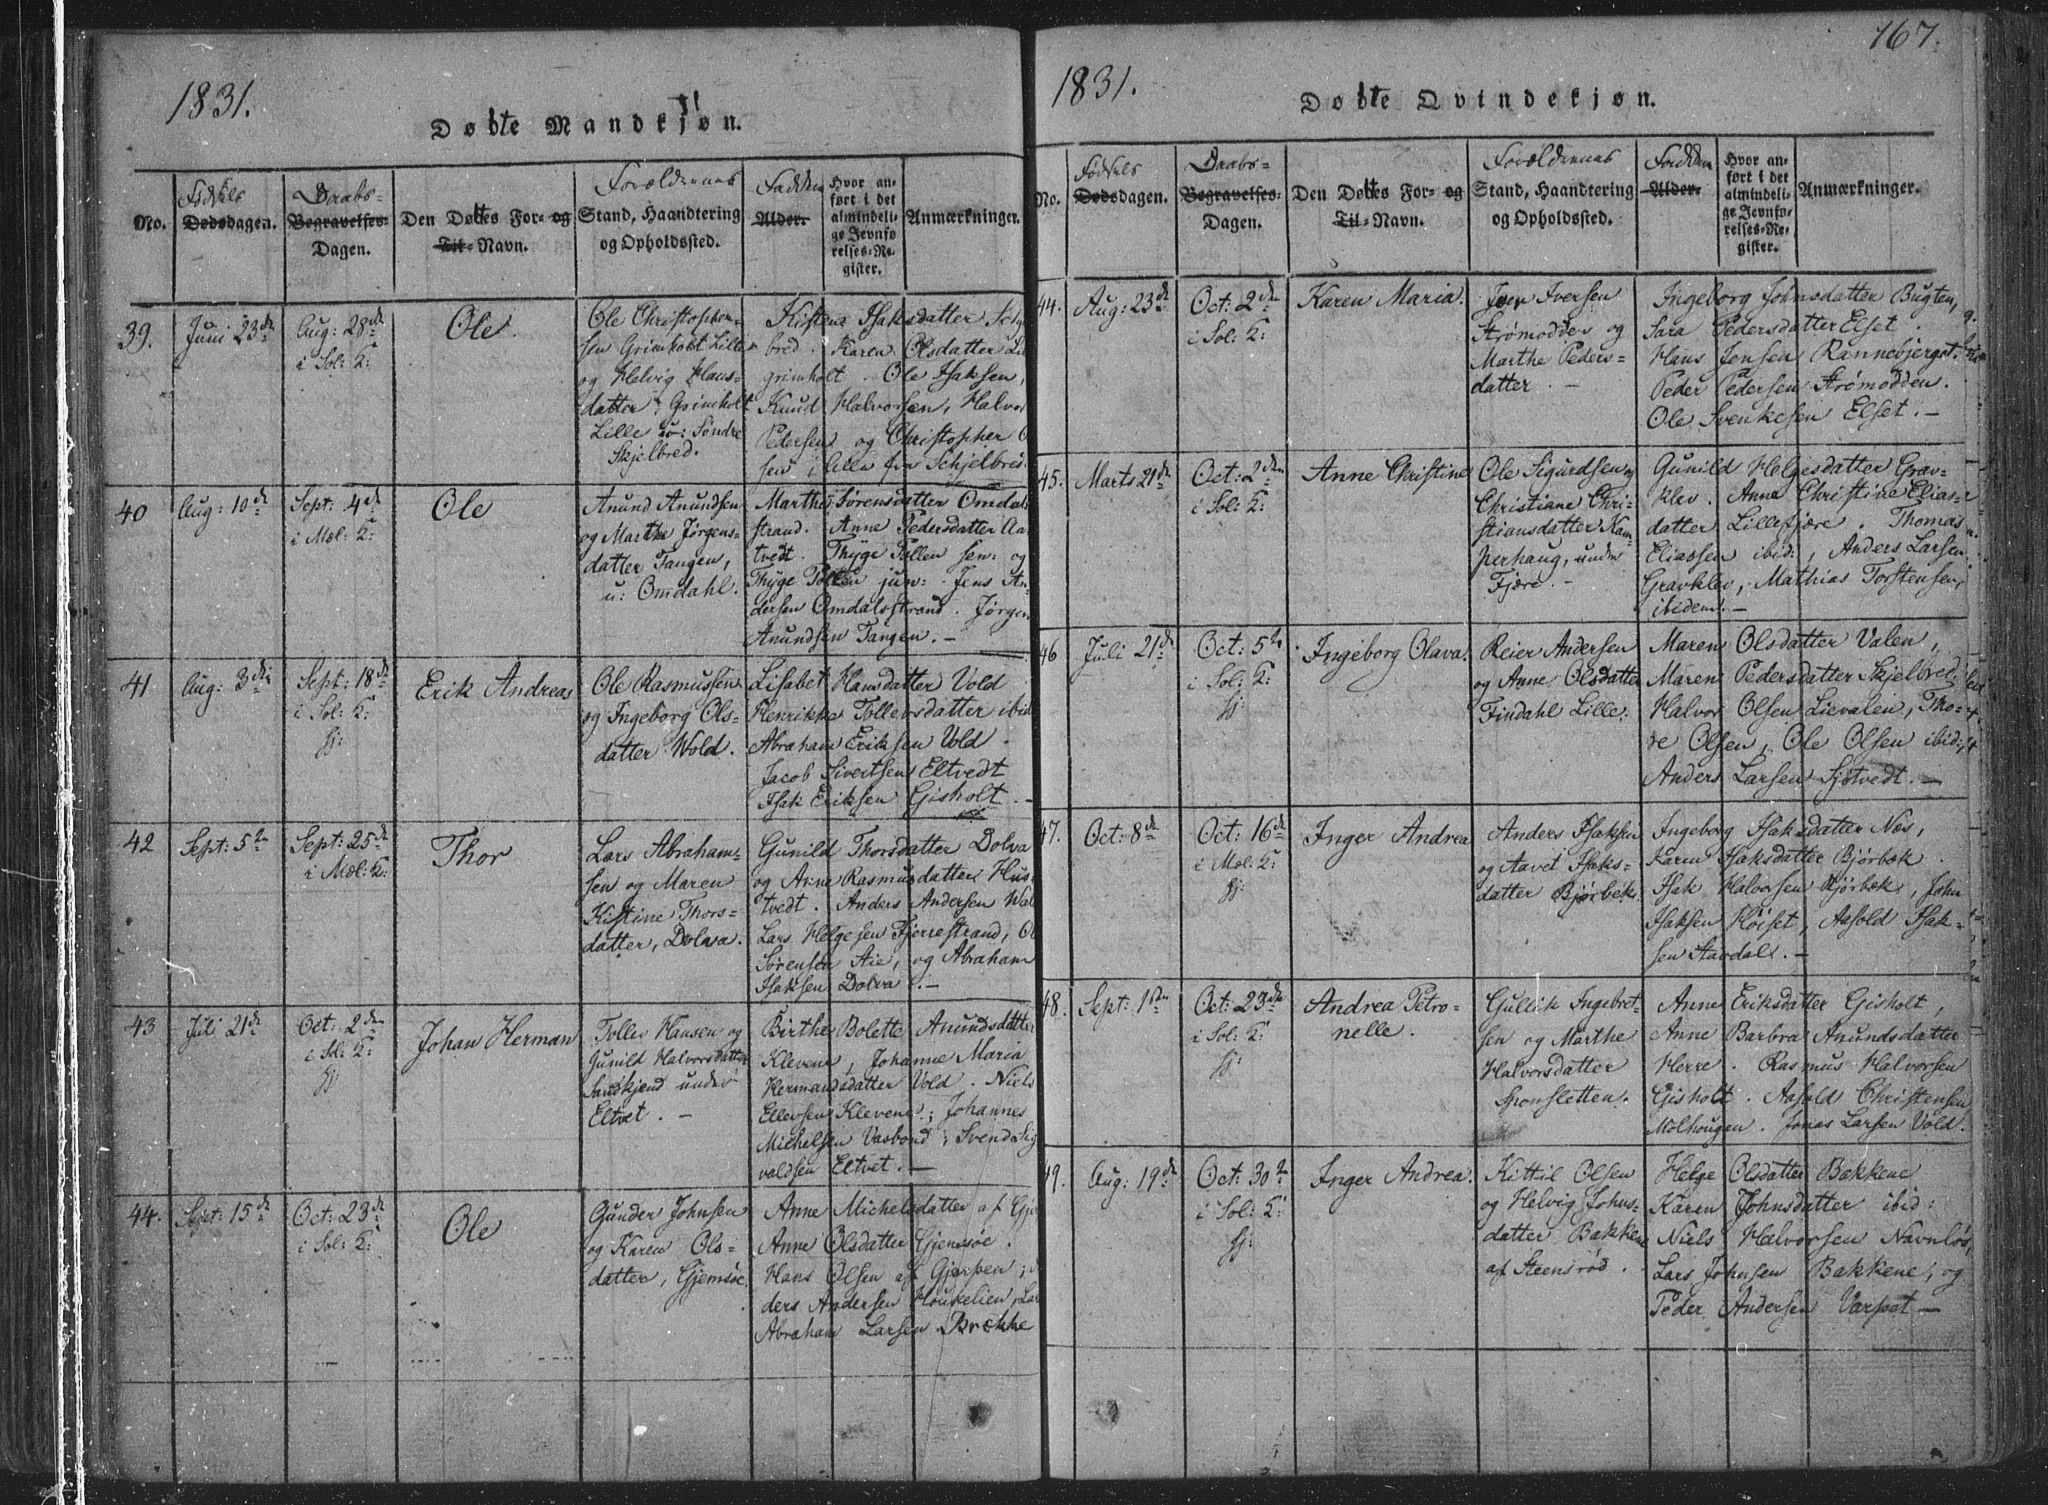 1831.
Døbte Mandkjøn.
No.
Fødsels
Dødsdagen.
Daabs-
Begravelses-
Dagen.
Den Døbtes For- og
Til- Navn.
Forældrenes
Stand, Haandtering
og Opholdssted.
Faddere
Alder.
Hvor an-
ført i det
almindeli-
ge Jevnfø
relses-Re-
gister.
Anmærkninger.
39.
Juni 23de
Aug: 28de
i Sol: K:
Ole.
Ole Christopher-
sen Grimholt Lille
og Helvig Hans-
datter Grimholt
Lille u: Søndre
Skjelbred.
Kistene Isaksdatter
bred. Karen Olsdatter
grimholt. Ole Isaksen,
Knud Halvorsen, Halvor
Pedersen og Christopher
sen i lille fra Schjelbred
40
Aug: 10de
Sept: 4de
i Mæl: K:
Ole
Anund Anundsen
og Marthe Jørgens-
datter Tangen,
u: Omdahl.
Marthe Sørensdatter Omdal
strand. Anne Pedersdatter
tvedt. Thyge Tollen sen: og
Thyge Tollen jun: Jens An
dersen Omdalsstrand. Jørgen
Anundsen Tangen. –
41
Aug: 3die
Sept: 18de
i Sol: K:
hj:
Erik Andreas
Ole Rasmussen
og Ingeborg Ols-
datter Wold.
Lisabet Hansdatter Vold
Henrikke Tollevsdatter ibid
Abraham Eriksen Vold
Jacob Sivertsen Eltvedt
Isak Eriksen Gisholt. –
42
Sept: 5te
Sept: 25de
i Mæl: K:
Thor
Lars Abraham-
sen og Maren
Kistine Thors-
datter, Dolva.
Gunild Thorsdatter Dolva
og Anne Rasmusdatter Hus
tvedt. Anders Andersen
Lars Helgesen Fjerrestrand,
Sørensen Aie, og Abraham
Isaksen Dolva. –
43
Juli 21de
Oct: 2den
i Sol: K:
hj:
Johan Herman
Tollev Hansen og
Gunild Halvorsdatter
Sandkjend under
Eltvet. –
Birthe Bolette Anundsdatter
Klevene, Johanne Maria
Hermansdatter Vold. Niels
Ellevsen Klevene; Johannes
Michelsen Vasbond; Svend Sig
valdsen Eltvet. –
44.
Sept: 15de
Oct: 23de
i Sol: K:
Ole
Gunder Johnsen
og Karen Ols-
datter, Gjemsøe.
Anne Michelsdatter af
Anne Olsdatter Gjemsøe.
Hans Olsen af Gjerpen;
ders Andersen Houkelien,
Abraham Larsen Brække
167.
1831.
Døbte Qvindekjøn.
No.
Fødsels
Dødsdagen.
Daabs-
Begravelses-
Dagen.
Den Døbtes For- og
Til- Navn.
Forældrenes
Stand, Haandtering
og Opholdssted.
Faddere
Alder.
Hvor an-
ført i det
almindeli-
ge Jevnfø-
relses-Re-
gister.
Anmærkninger.
44.
Aug: 23de
Oct: 2den
i Sol: K:
Karen Maria.
Iver Iversen
Strømodden og
Marthe Peders-
datter. –
Ingeborg Johnsdatter Bugten,
Sara Pedersdatter Elset.
Hans Jonsen Rannebjerget.
Peder Pedersen Strømodden.
Ole Svenkesen Elset. –
45.
Marts 21de
Oct: 2den
i Sol: K:
Anne Christine
Ole Sigurdsen og
Christiane Chri-
stiansdatter Kam-
perhaug, under
Fjære. –
Gunild Helgesdatter Grav-
klev. Anne Christine Elias-
datter Lillefjære. Thomas
Eliassen ibid:, Anders Larsen
Gravklev, Mathias Torstensen,
ibidem. –
46
Juli 21de
Oct: 5te
i Sol: K:
hj:
Ingeborg Olava.
Reier Andersen
og Anne Olsdatter
Findahl Lille.
Maren Olsdatter Valen,
Maren Pedersdatter Skjelbred.
Halvor Olsen Lievalen, Tho-
re Olsen, Ole Olsen ibid:,
Anders Larsen Sjøtvedt. –
47.
Oct: 8de
Oct: 16de
i Mæl: K:
hj:
Inger Andrea
Anders Isaksen
og Aavet Isaks-
datter Bjørbek.
Ingeborg Isaksdatter Næs,
Karen Isaksdatter Bjørbæk.
Isak Halvorsen Bjørbæk, John
Isaksen Høiset, Aasold Isak-
sen Aavdal. –
48.
Sept: 1ste
Oct: 23de
i Sol: K:
hj:
Andrea Petro-
nelle.
Gullik Ingebret-
sen og Marthe
Halvorsdatter
Sponsletten.
Anne Eriksdatter Gisholt,
Anne Barbra Anundsdatter
Herre. Rasmus Halvorsen
Gisholt. Aasold Christensen
Molhougen. Jonas Larsen Vold.
49.
Aug: 19de
Oct: 30te
i Sol: K:
hj:
Inger Andrea.
Kittil Olsen
og Helvig Johns-
datter Bakkene
af Steensrød.
Helge Olsdatter Bakkene
Karen Johnsdatter ibid:
Niels Halvorsen Navnløs,
Lars Johnsen Bakkene, og
Peder Andersen Varpet –